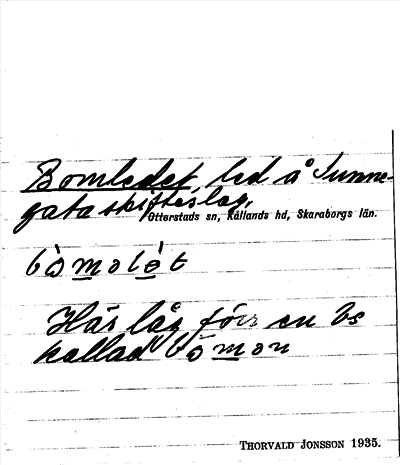 Bomledet, led å Sunne-
gata skifteslag,
Otterstads sn, Kållands hd, Skaraborgs län.
bòmolèt
Här låg förr en bs
kallad bòmon
THORVALD JONSSON 1935.